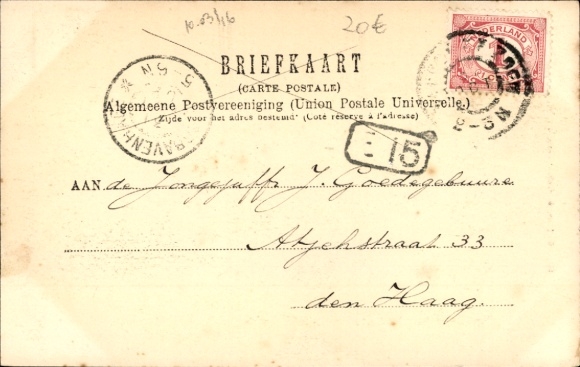 20€
NEDERLAND
BRIEFKAART
(CARTE POSTALE)
Algemeene Postvereeniging (Union Postale Universelle.)
Zijde voor het adres bestemd. (Coté réservé à l'adresse)
5-8N
15
AAN de Jongejuffr J. Goedegebuure
Atjehstraat 33
den Haag.